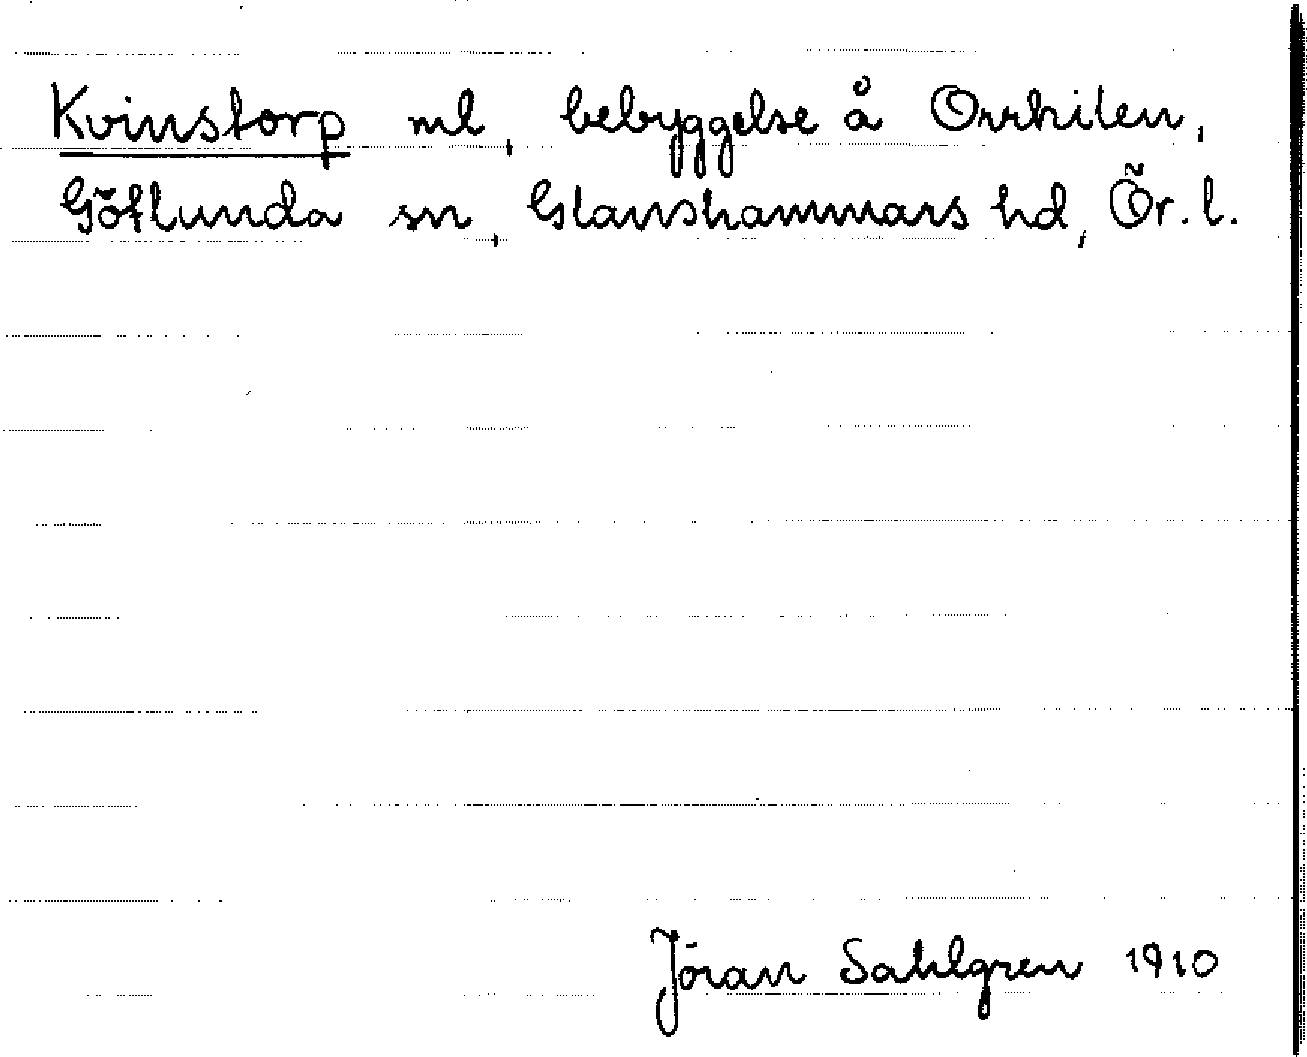 Kvinstorp ml, bebyggelse å Orrkilen,
Götlunda sn, Glanshammars hd, Ör. l.
Jöran Sahlgren 1910